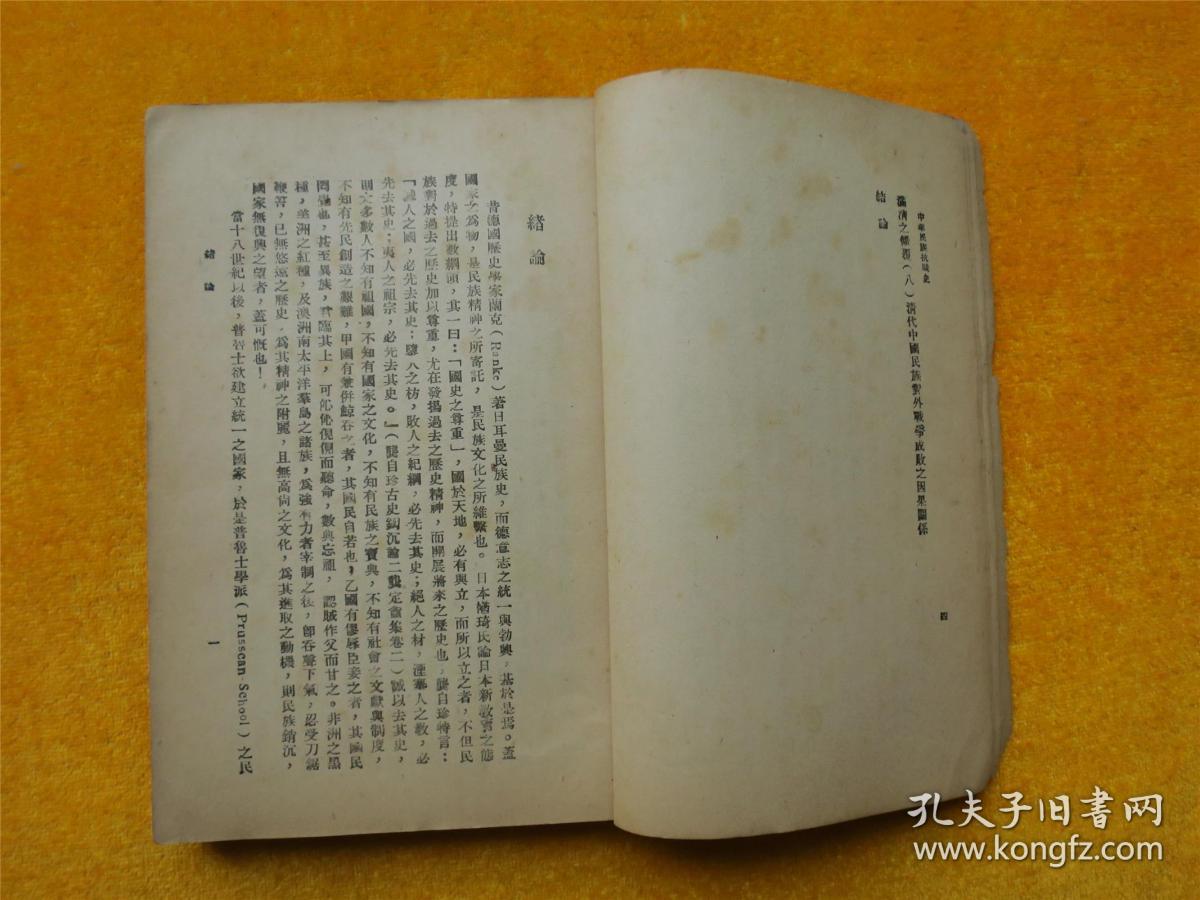 中華民族抗戰史
滿清之傾覆（八）清代中國民族對外戰爭成敗之因果關係
結論
四
緒論
昔德國歷史學家蘭克（Ranke）著日耳曼民族史，而德意志之統一與勃興，基於是焉。蓋
國家之爲物，是民族精神之所寄託，是民族文化之所維繫也。日本犧琦氏論日本新教育之態
度，特提出數綱領，其一曰：「國史之尊重」，國於天地，必有與立，而所以立之者，不但民
族對於過去之歷史加以尊重，尤在發揚過去之歷史精神，而開展將來之歷史也。龔自珍特言：
「滅人之國，必先去其史；隳人之枋，敗人之紀綱，必先去其史；絕人之材，湮塞人之教，必
先去其史；夷人之祖宗，必先去其史。」（龔自珍古史鈎沉論二龔定盦集卷二）誠以去其史，
則大多數人不知有祖國，不知有國家之文化，不知有民族之寶典，不知有社會之文獻與制度，
不知有先民創造之艱難，甲國有兼併鯨吞之者，其國民自若也，乙國有僇辱臣妾之者，其國民
罔覺也，甚至異族，君臨其上，可伈伈俔俔而聽命，數典忘祖，認賊作父而甘之。非洲之黑
種，美洲之紅種，及澳洲南太平洋羣島之諸族，爲強有力者宰制之後，卽吞聲下氣，忍受刀鋸
鞭笞，已無悠遠之歷史，爲其精神之附麗，且無高尚之文化，爲其進取之動機，則民族銷沉，
國家無復興之望者，蓋可慨也！
當十八世紀以後，普魯士欲建立統一之國家，於是普魯士學派（Prusscan School）之民
緒論
一
孔夫子旧书网
www.kongfz.com